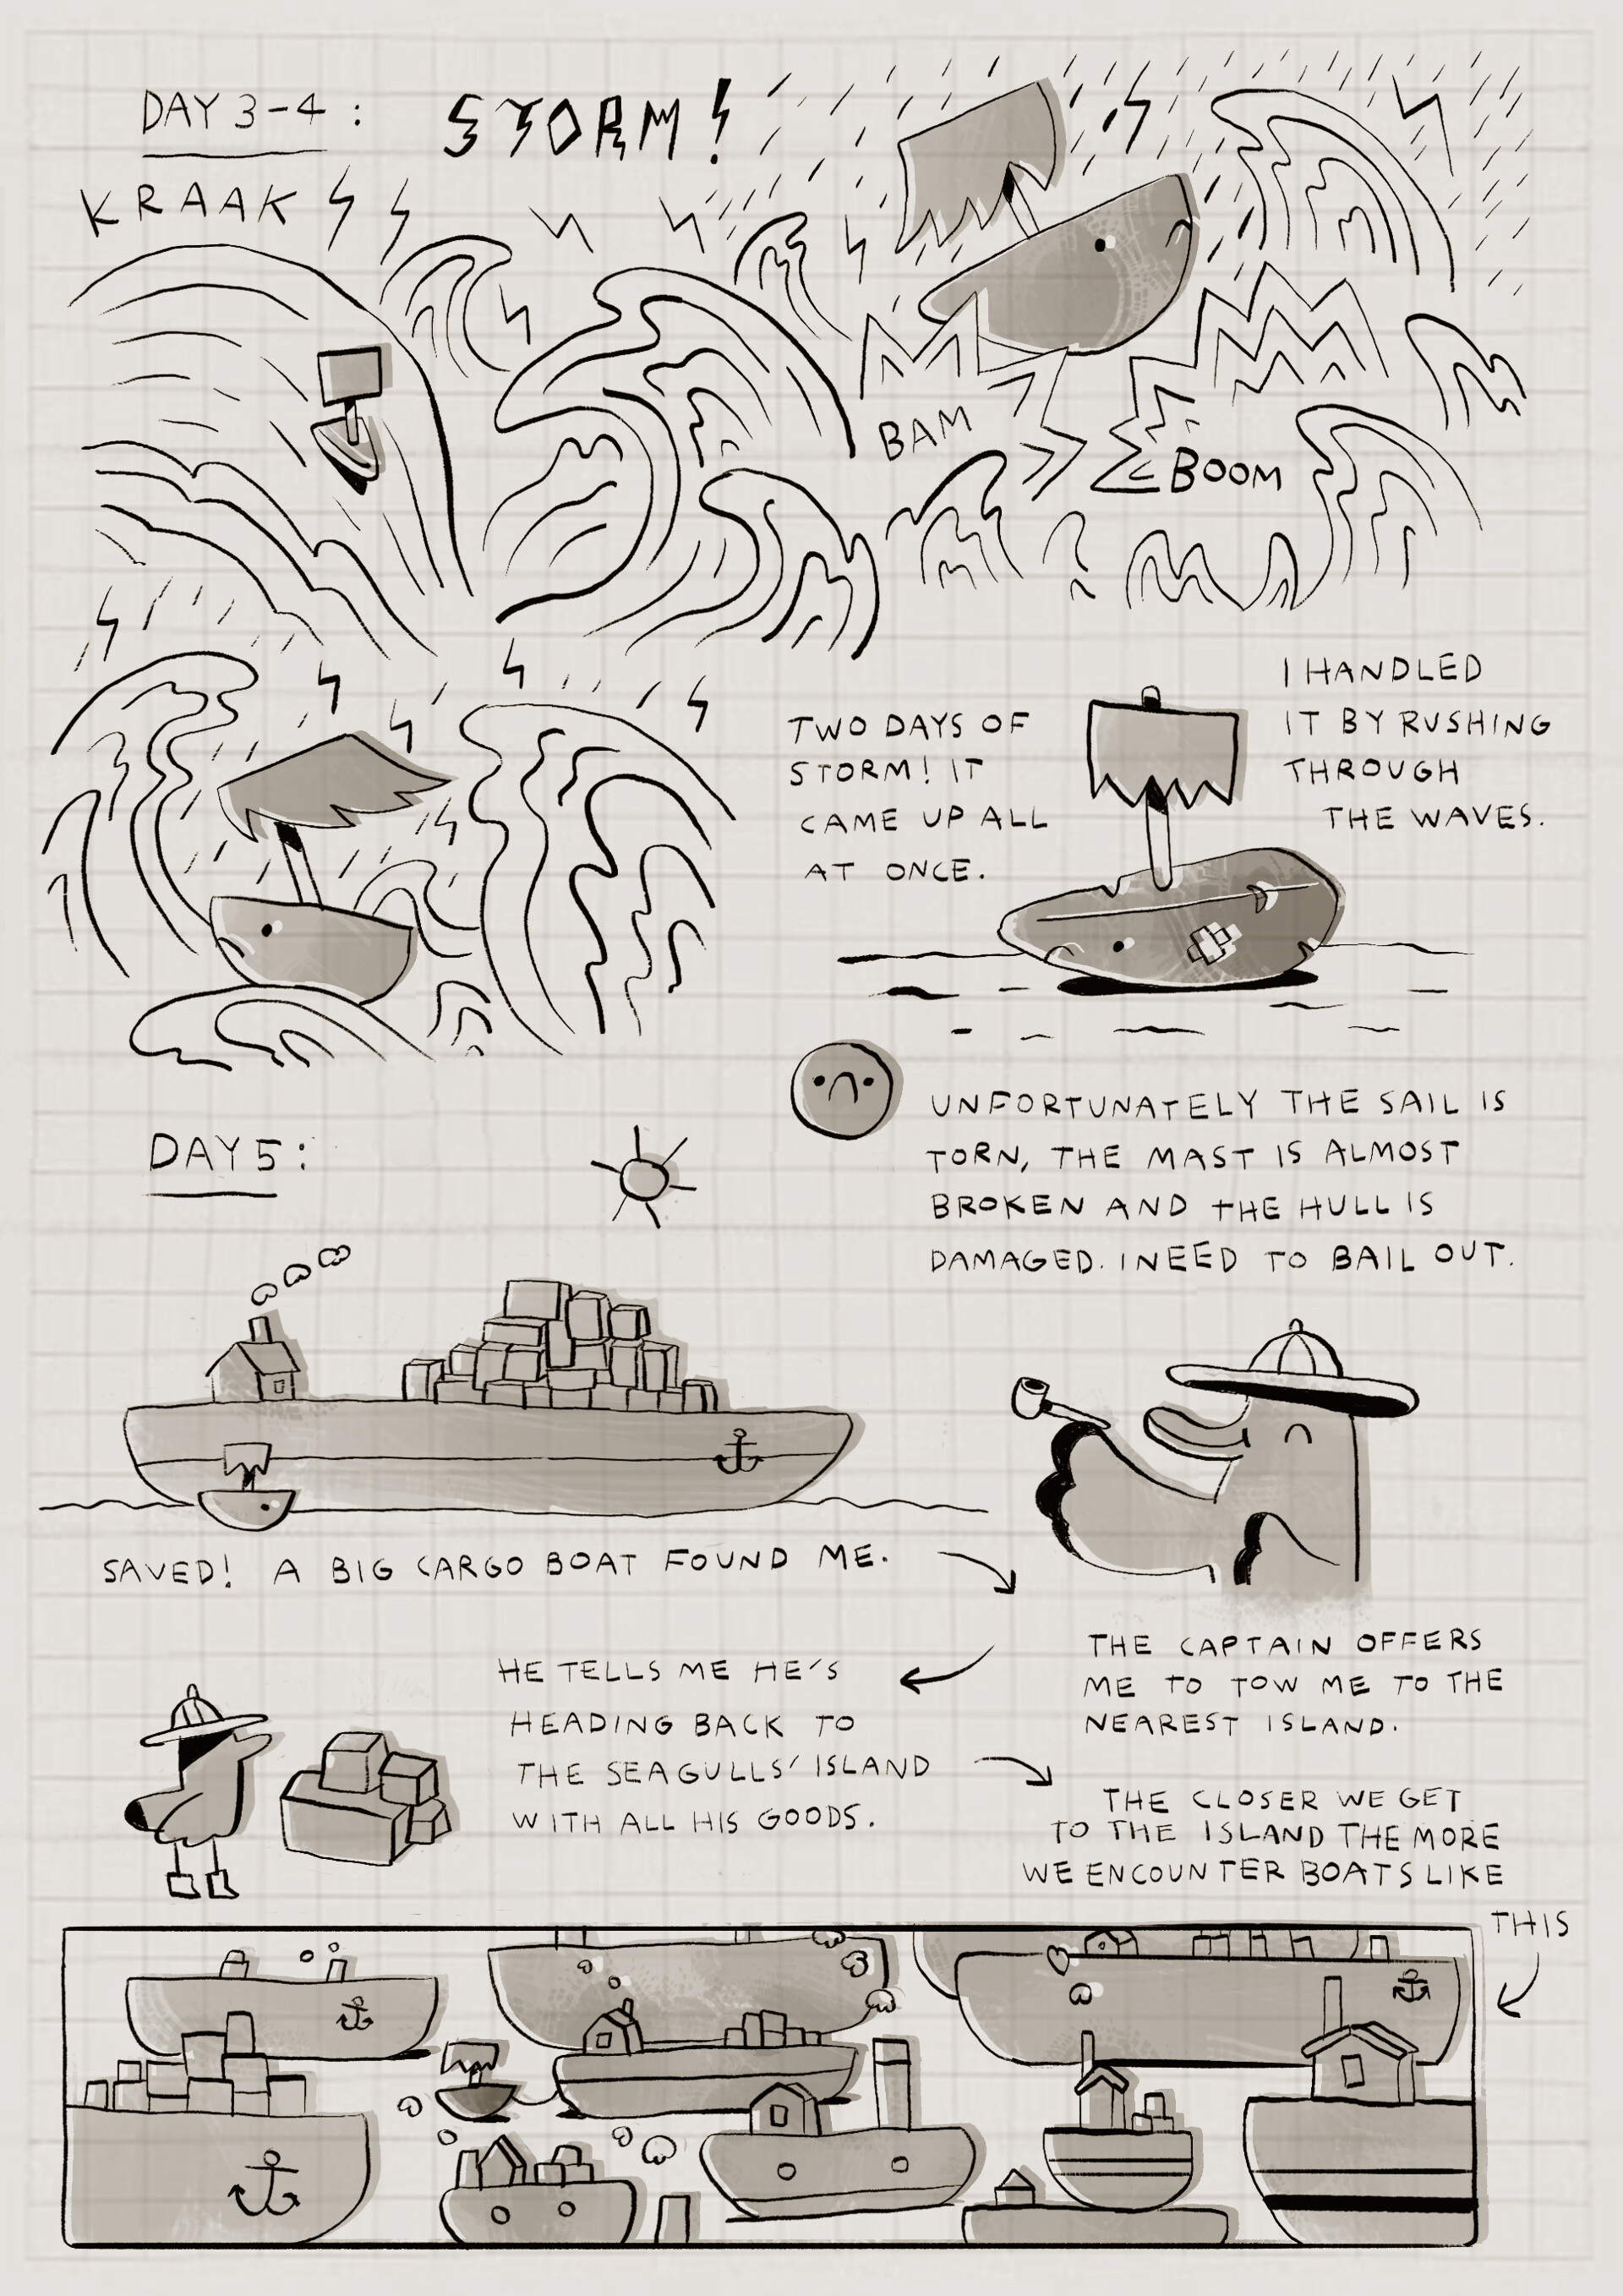 DAY 3-4 : STORM!
KRAAK
BAM
BOOM
TWO DAYS OF
STORM! IT
CAME UP ALL
AT ONCE.
I HANDLED
IT BY RUSHING
THROUGH
THE WAVES.
UNFORTUNATELY THE SAIL IS
TORN, THE MAST IS ALMOST
BROKEN AND THE HULL IS
DAMAGED. I NEED TO BAIL OUT.
DAY 5 :
SAVED! A BIG CARGO BOAT FOUND ME.
THE CAPTAIN OFFERS
ME TO TOW ME TO THE
NEAREST ISLAND.
HE TELLS ME HE'S
HEADING BACK TO
THE SEAGULLS' ISLAND
WITH ALL HIS GOODS.
THE CLOSER WE GET
TO THE ISLAND THE MORE
WE ENCOUNTER BOATS LIKE
THIS